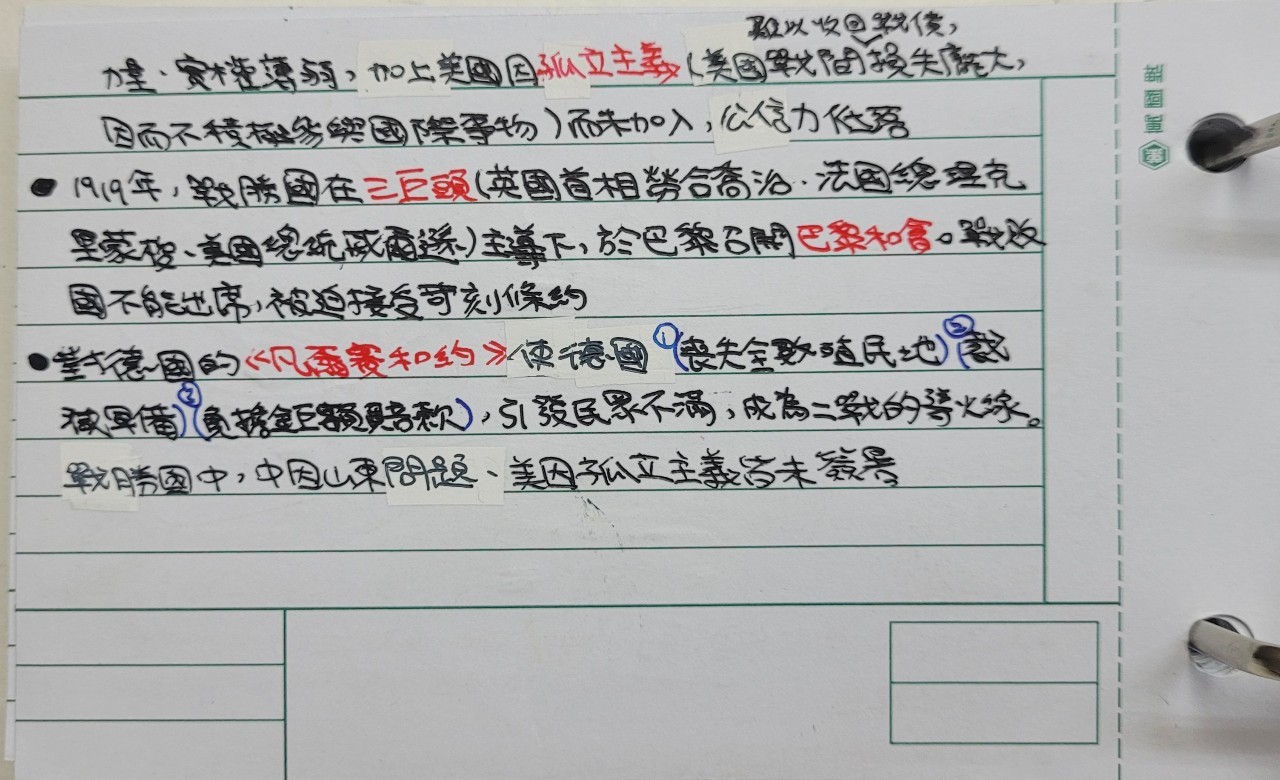 難以收回戰債,
力量、實權薄弱,加上美國因孤立主義(美國戰間損失龐大,
因而不積極參與國際事物)而未加入,公信力低落
● 1919年,戰勝國在三巨頭(英國首相勞合喬治、法國總理克
里蒙梭、美國總統威爾遜)主導下,於巴黎召開巴黎和會。戰敗
國不能出席,被迫接受苛刻條約
● 對德國的《凡爾賽和約》使德國①(喪失全數殖民地)②(裁
減軍備)③(負擔鉅額賠款),引發民眾不滿,成為二戰的導火線。
戰勝國中,中因山東問題、美因孤立主義皆未簽署